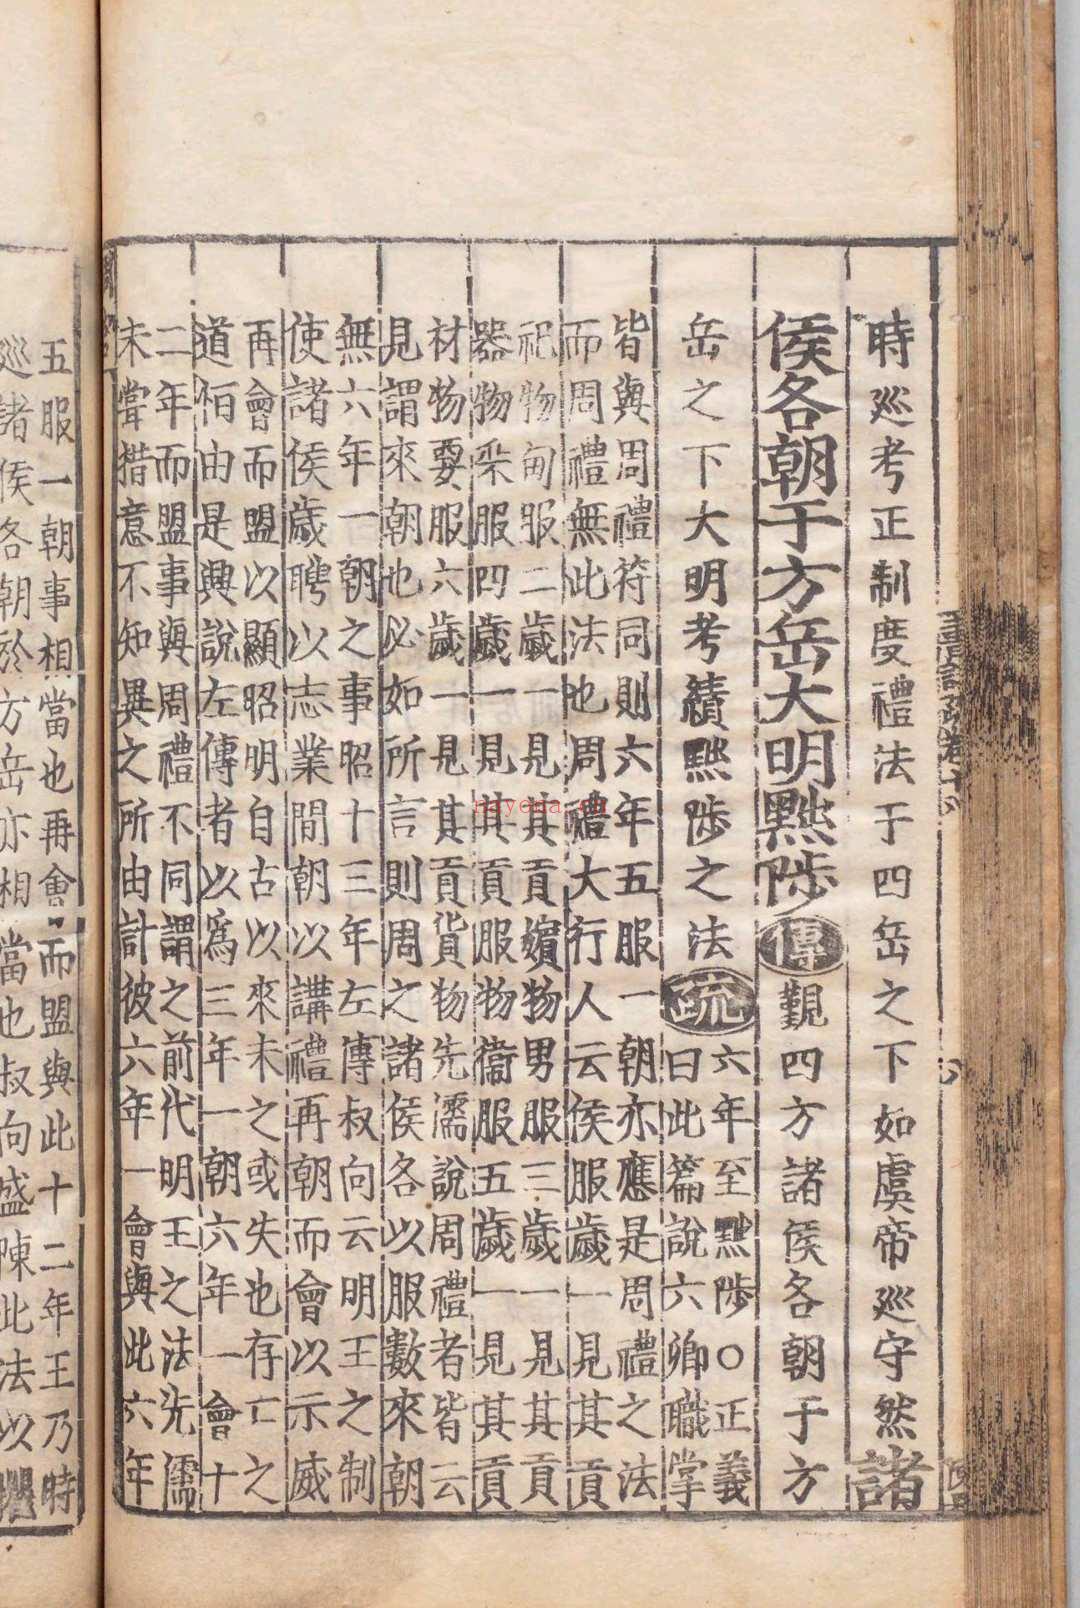 時巡考正制度禮法于四岳之下如虞帝巡守然諸
侯各朝于方岳大明黜陟傳覲四方諸侯各朝于方
岳之下大明考績黜陟之法疏
六年至黜陟○正義
曰此篇說六卿職掌
皆與周禮符同則六年五服一朝亦應是周禮之法
而周禮無此法也周禮大行人云侯服歲一見其貢
祀物甸服二歲一見其貢嬪物男服三歲一見其貢
器物采服四歲一見其貢服物衞服五歲一見其貢
材物要服六歲一見其貢貨物先濡說周禮者皆云
見謂來朝也必如所言則周之諸侯各以服數來朝
無六年一朝之事昭十三年左傳叔向云明王之制
使諸侯歲聘以志業間朝以講禮再朝而會以示威
再會而盟以顯昭明自古以來未之或失也存亡之
道恒由是興說左傳者以爲三年一朝六年一會十
二年而盟事與周禮不同謂之前代明王之法先儒
未嘗措意不知異之所由計彼六年一會與此六年
五服一朝事相當也再會而盟與此十二年王乃時
巡諸侯各朝於方岳亦相當也叔向盛陳此法以懼
nayona.cn